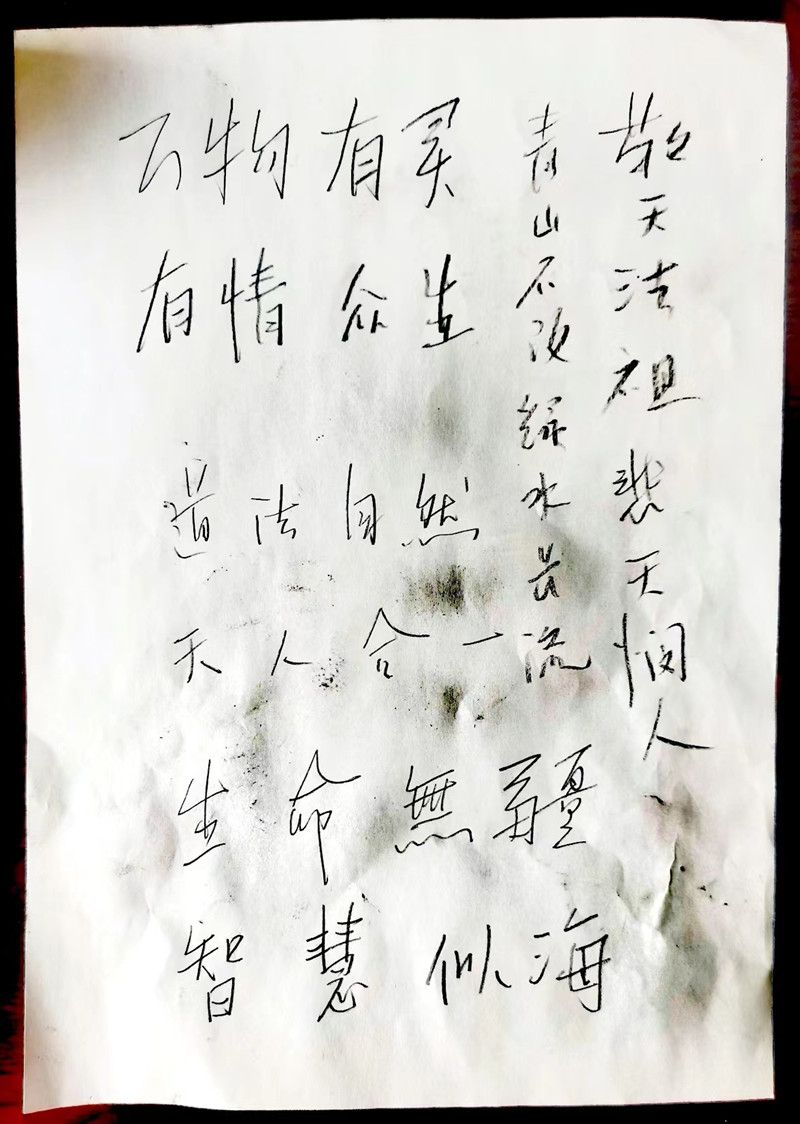 万物有灵
有情众生
道法自然
天人合一
生命無疆
智慧似海
敬天法祖悲天悯人
青山不改绿水长流